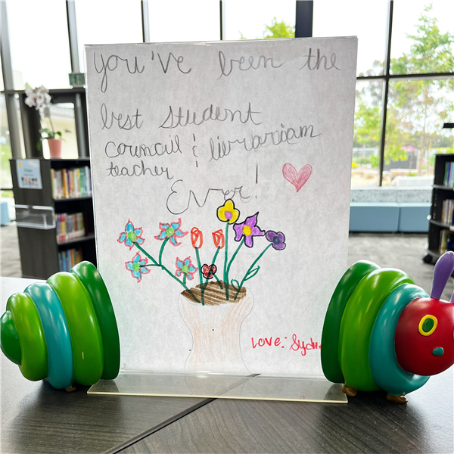 you've been the
best student
council & librarian
teacher
Ever!
Love: Syd